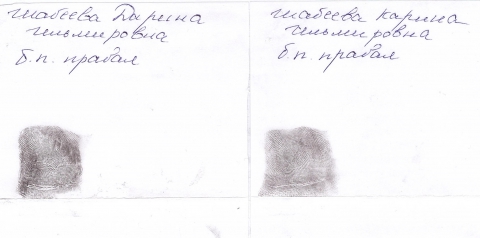 шабеева Дарина
чельмировна
б.п. правая
шабеева карина
чельмировна
б.п. правая